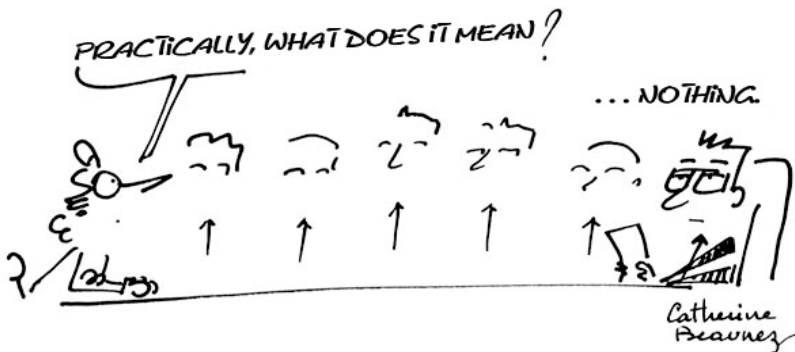 PRACTICALLY, WHAT DOES IT MEAN?
...NOTHING.
Catherine
Beaunez